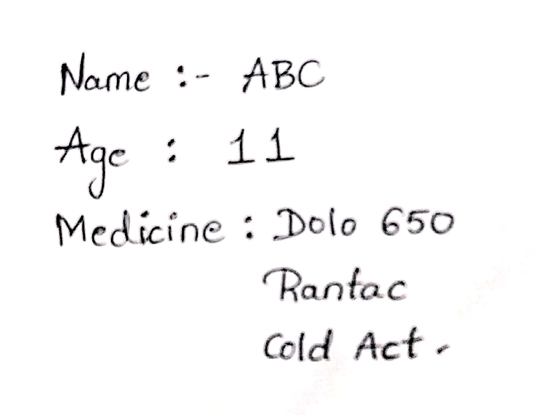 Name :- ABC
Age : 11
Medicine : Dolo 650
Rantac
Cold Act.